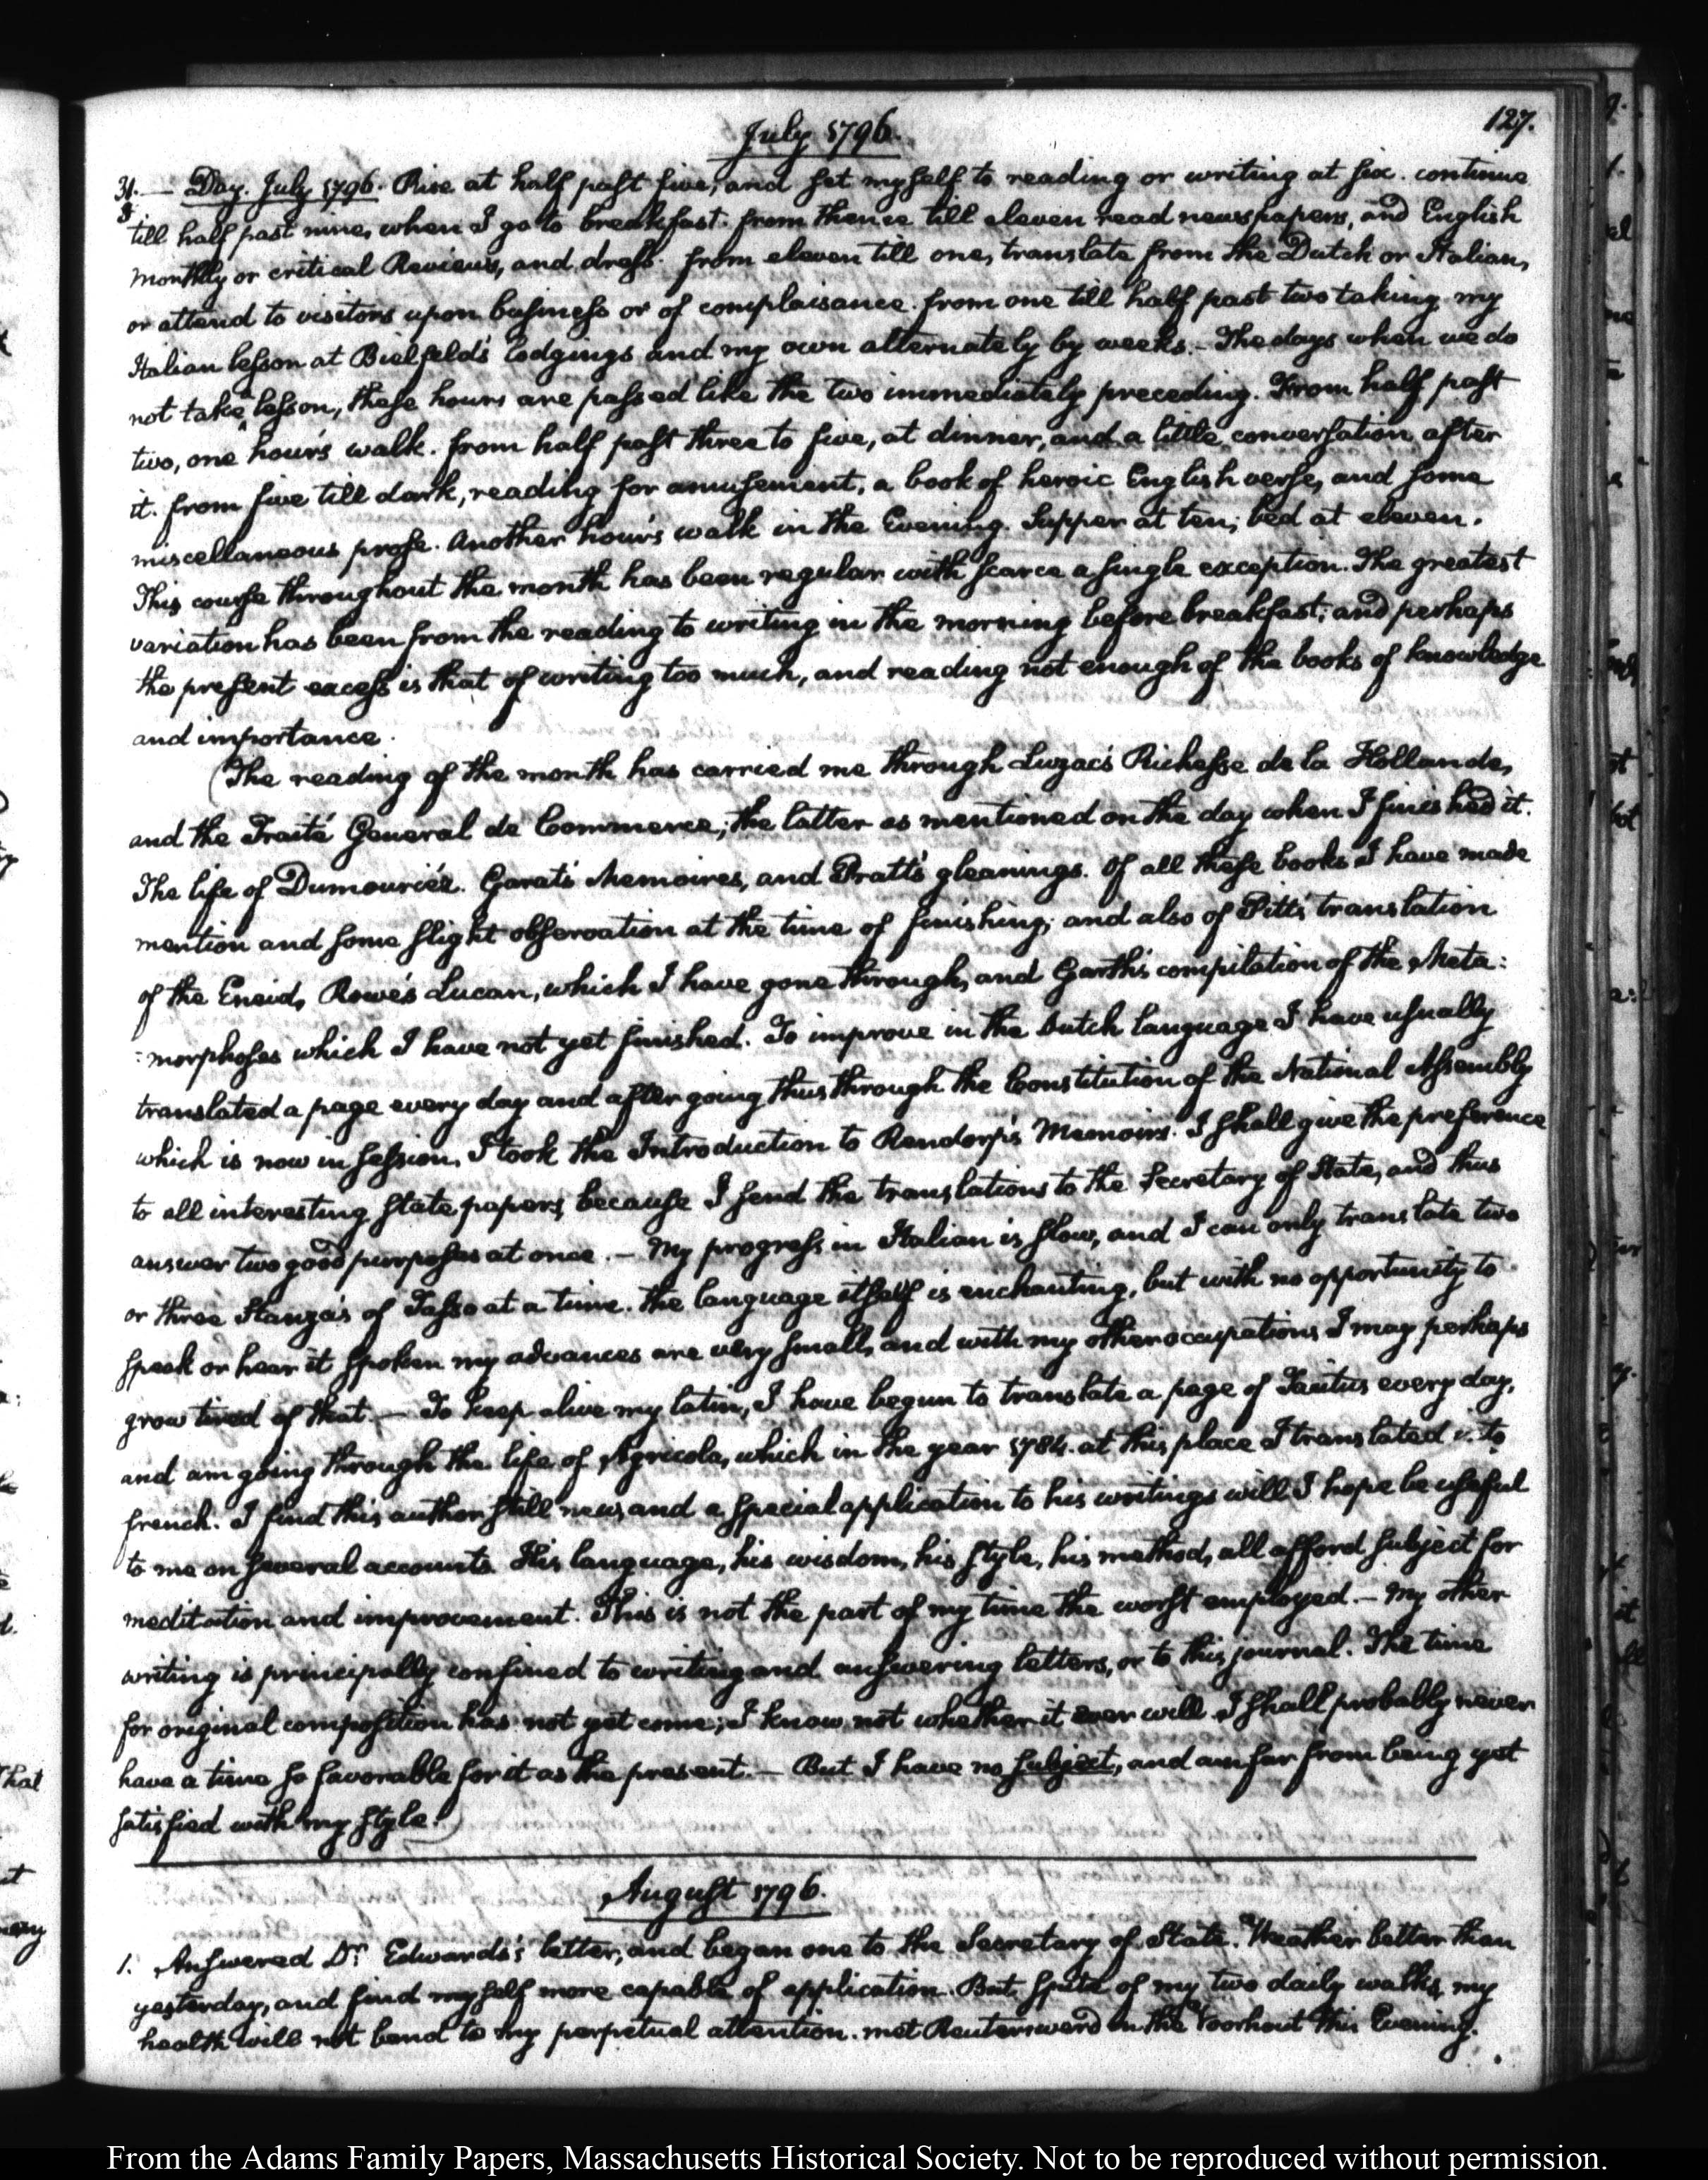 127.
July 1796.
31. — Day. July 1796. Rise at half past five, and set myself to reading or writing at six. continue
till half past nine, when I go to breakfast. from thence till eleven read newspapers, and English
monthly or critical Reviews, and dress. from eleven till one, translate from the Dutch or Italian,
or attend to visitors upon business or of complaisance. from one till half past two taking my
Italian lesson at Bielfeld's lodgings and my own alternately by weeks. — The days when we do
not take a lesson, these hours are passed like the two immediately preceding. From half past
two, one hour's walk. from half past three to five, at dinner, and a little conversation after
it. from five till dark, reading for amusement, a book of heroic English verse, and some
miscellaneous prose. Another hour's walk in the Evening. Supper at ten; bed at eleven.
This course throughout the month has been regular with scarce a single exception. The greatest
variation has been from the reading to writing in the morning before breakfast; and perhaps
the present excess is that of writing too much, and reading not enough of the books of knowledge
and importance.
(The reading of the month has carried me through Luzac's Richesse de la Hollande,
and the Traité General de Commerce; the latter as mentioned on the day when I finished it.
The life of Dumouriér. Garat's Memoires, and Pratt's gleanings. Of all these books I have made
mention and some slight observation at the time of finishing; and also of Pitt's translation
of the Eneid, Rowe's Lucan, which I have gone through, and Garth's compilation of the Meta:
:morphoses which I have not yet finished. To improve in the Dutch language I have usually
translated a page every day and after going thus through the Constitution of the National Assembly
which is now in session, I took the Introduction to Rendorp's Memoirs. I shall give the preference
to all interesting State papers, because I send the translations to the Secretary of State, and thus
answer two good purposes at once. — My progress in Italian is slow, and I can only translate two
or three Stanza's of Tasso at a time. The language itself is enchanting, but with no opportunity to
speak or hear it spoken my advances are very small, and with my other occupations I may perhaps
grow tired of that. — To keep alive my latin, I have begun to translate a page of Tacitus every day,
and am going through the life of Agricola, which in the year 1784. at this place I translated into
french. I find this author still new, and a special application to his writings will I hope be useful
to me on several accounts. His language, his wisdom, his style, his method, all afford subject for
meditation and improvement. This is not the part of my time the worst employed. — My other
writing is principally confined to writing and answering letters, or to this journal. The time
for original composition has not yet come; I know not whether it ever will. I shall probably never
have a time so favorable for it as the present. — But I have no subject, and am far from being yet
satisfied with my style.)
August 1796.
1. Answered Dr. Edwards's letter, and began one to the Secretary of State. Weather better than
yesterday, and find myself more capable of application. But spite of my two daily walks, my
health will not bend to my perpetual attention. met Reutersward in the Voorhout this Evening.
From the Adams Family Papers, Massachusetts Historical Society. Not to be reproduced without permission.